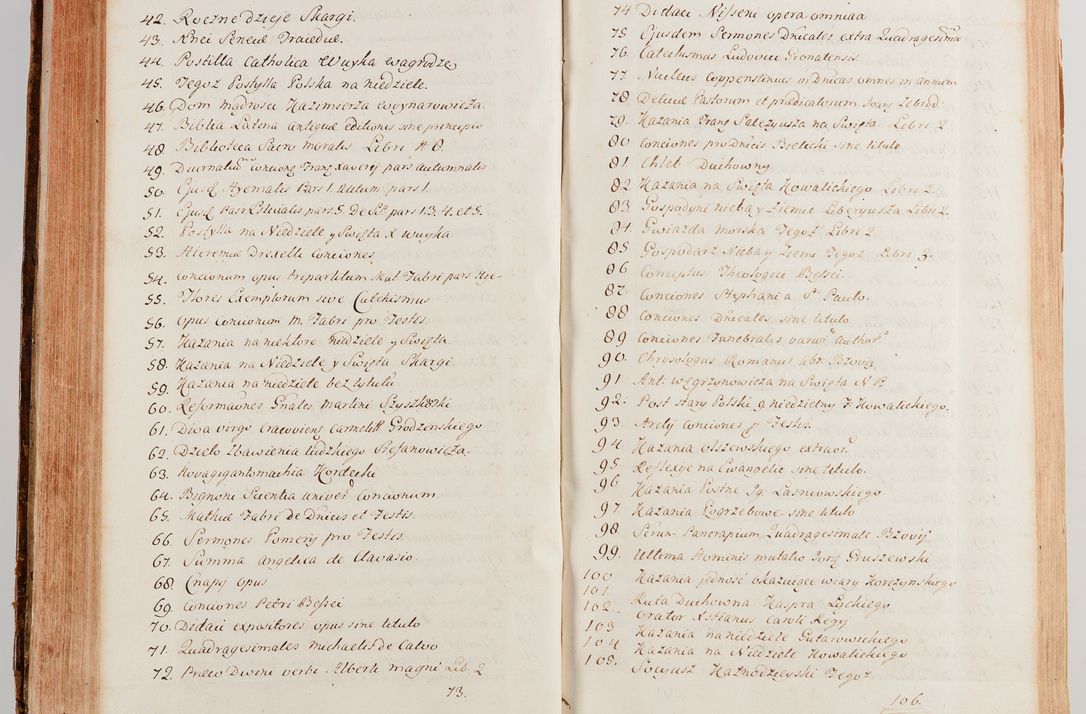 42. Roczne dzieje Skargi.
43. Knei Seneul Traiedul.
44. Postilla Catholica Wuyka wagrodze
45. Tegoż Postylla Polska na niedziele.
46. Dom mądrosci Kazimierza Woynarowicza.
47. Biblia Latina antiquæ editionis sine principio
48. Biblioteca Sacro moralis Libri
49. Diurnaliū concionū Franç Xaverij pars autumnalis
50. Ejusđ Hyemalis Pars 1. autum: pars 1.
51. Ejusđ Pars Estivalis pars 5. De Stis pars 1. 3. 4. et 5.
52. Postylla na Niedziele y Swięta X Wuyka
53. Hieremiæ Drexelli Conciones
54. Concionum opus tripartitum Mat. Fabri pars Hye-
55. Flores Exemplorum sive Catechismus
56. Opus Concionum M. Fabri pro Festis
57. Kazania na niektore Niedziele y Swięta.
58. Kazania na Niedziele y Swięta Skargi
59. Kazania na niedziele bez tytułu
60. Reformaones Gnales Martini Szyszkoski
61. Diva virgo Cracoviens Carmelit Grodzenskiego
62. Dzieło Zbawienia ludzkiego Stefanowicza.
63. Novagigantomachia Kordecki
64. Bignoni Scientia univer Concionum
65. Mathiæ Fabri de Dnicis et Festis
66. Sermones Pomerij pro Festis.
67. Summa angelica de Clavasio.
68. Cnapij opus
69. Conciones Petri Bessei
70. Didaci expositores opus sine titulo
71. Quadragesimales Michaelis de Calvo
72. Præco Divini verbi Alberti magni Lib. 2
73.
74 Didaci Nisseni opera omnia
75 Ejusdem Sermones Dnicales extra Quadragesimā
76 Catechismus Ludovici Granatensis
77. Nucleus Coppensteinius in Dnicas omnes in annum
78 Deliciæ Pastorum et prædicatorum Joan Zebrod.
79. Kazania Franç Patczyusza na Swięta Libri 2
80 Conciones pro Dnicis Bielicki sine titulo
81. Chleb Duchowny
82 Kazania na Swięta Kowalickiego Libri 2.
83. Gospodyni nieba y Ziemie Liberyusza Libri 2.
84. Gwiazda morska Tegoż Libri 2
85 Gospodarz Nieba y Ziemi Tegoż Libri 3.
86 Conceptus Theologici Bessei
87. Conciones Stephani a S. Paulo.
88 Conciones Dnicales sine titulo
89 Conciones Funebrales varior Author.
90. Chrisologus Romanus abr. Bzovij
91 Ant. Węgrzynowicza na Swięta N P
92. Post stary Polski 9 niedzielny F. Kowalickiego.
93. Arety Conciones p Festis.
94 Kazania Olszewskiego extraor.
95. Reflexye na Ewangelie sine titulo.
96 Kazania Postne Jg. Lasniowskiego
97 Kazania Pogrzebowe sine titulo
98 Sirun Pancrapium Quadragesimale Bzovij
99. Ultima Hominis mutatio Jorg Gruszewski
100 Kazania jedność okazuiące wiary Korczynskiego
101
102. Ruta Duchowna Kaspra Lyckiego
103 Orator Xstianus Caroli Regij
104 Kazania na niedziele Gutarowskiego
105. Kazania na Niedziele Kowalickiego
Socyusz Kaznodzieyski Tegoż
106.